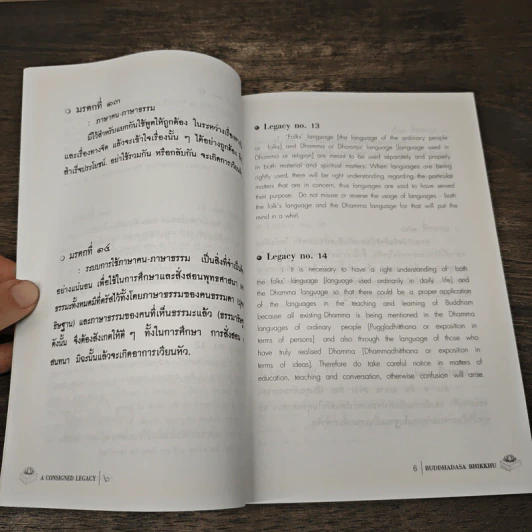 มรดกที่ ๑๓
: ภาษาคน-ภาษาธรรม
มีไว้สำหรับแยกกันใช้พูดให้ถูกต้อง ในระหว่างเรื่องทาง
และเรื่องทางจิต แล้วจะเข้าใจเรื่องนั้น ๆ ได้อย่างถูกต้อง
สำเร็จประโยชน์. อย่าใช้รวมกัน หรือกลับกัน จะเกิดการเวียนหัว
มรดกที่ ๑๔
: ระบบการใช้ภาษาคน-ภาษาธรรม เป็นสิ่งที่จำเป็น
อย่างแน่นอน เพื่อใช้ในการศึกษาและสั่งสอนพุทธศาสนา
ธรรมะทั้งหมดมีที่ตรัสไว้ทั้งโดยภาษาธรรมของคนธรรมดา
ธิษฐาน) และภาษาธรรมของคนที่เห็นธรรมะแล้ว (ธรรมาธิษ
ดังนั้น จึงต้องสังเกตให้ดี ๆ ทั้งในการศึกษา การสั่งสอน
สนทนา มิฉะนั้นแล้วจะเกิดอาการเวียนหัว.
A CONSIGNED LEGACY ๖
Legacy no. 13
: 'Folks' language [the language of the ordinary people
or folks] and Dhamma or Dhamma' language [language used in
Dhamma or religion] are meant to be used separately and properly
in both material and spiritual matters. When languages are being
rightly used, there will be right understanding regarding the particular
matters that are in concern, thus languages are said to have served
their purpose. Do not misuse or reverse the usage of languages - both
the folk's language and the Dhamma language for that will put the
mind in a whirl.
Legacy no. 14
: It is necessary to have a right understanding of both
the folks' language [language used ordinarily in daily life] and
the Dhamma language so that there could be a proper application
of the languages in the teaching and learning of Buddhism
because all existing Dhamma is being mentioned in the Dhamma
languages of ordinary people [Puggladhitthana or exposition in
terms of persons] and also through the language of those who
have truly realised Dhamma [Dhammadhitthana or exposition in
terms of ideas]. Therefore do take careful notice in matters of
education, teaching and conversation, otherwise confusion will arise.
6 BUDDHADASA BHIKKHU